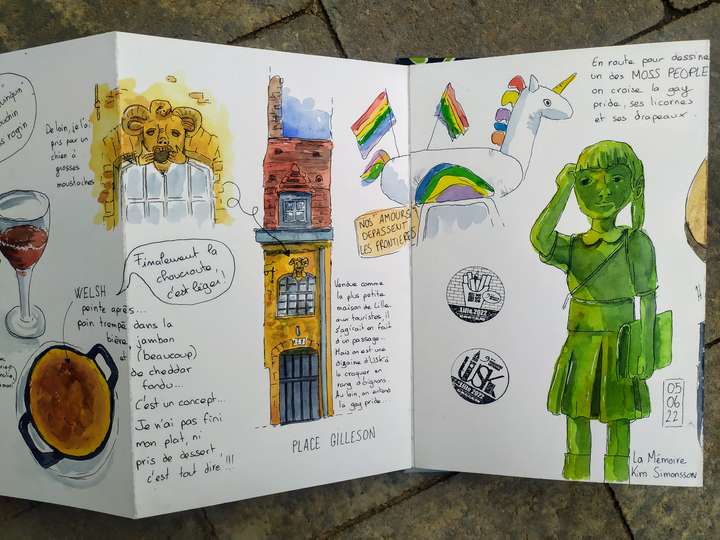 De loin, je l'ai
pris par un
chien à
grosses
moustaches
Finalement la
choucroute
c'est léger !
WELSH
peinte après...
pain trempé dans la
bière, jambon
et (beaucoup)
de cheddar
fondu...
C'est un concept...
Je n'ai pas fini
mon plat, ni
pris de dessert,
c'est tout dire !!!
PLACE GILLESON
Vendue comme
la plus petite
maison de Lille
aux touristes, il
s'agirait en fait
d'un passage...
Mais on est une
dizaine d'USK à
la croquer en
rang d'oignons
Au loin, on entend
la gay pride...
NOS AMOURS
DEPASSENT
LES FRONTIERES
En route pour dessiner
un des MOSS PEOPLE
on croise la gay
pride, ses licornes
et ses drapeaux.
Lille.2022
USK
LILLE 2022
05
06
22
La Mémoire
Kim Simonsson